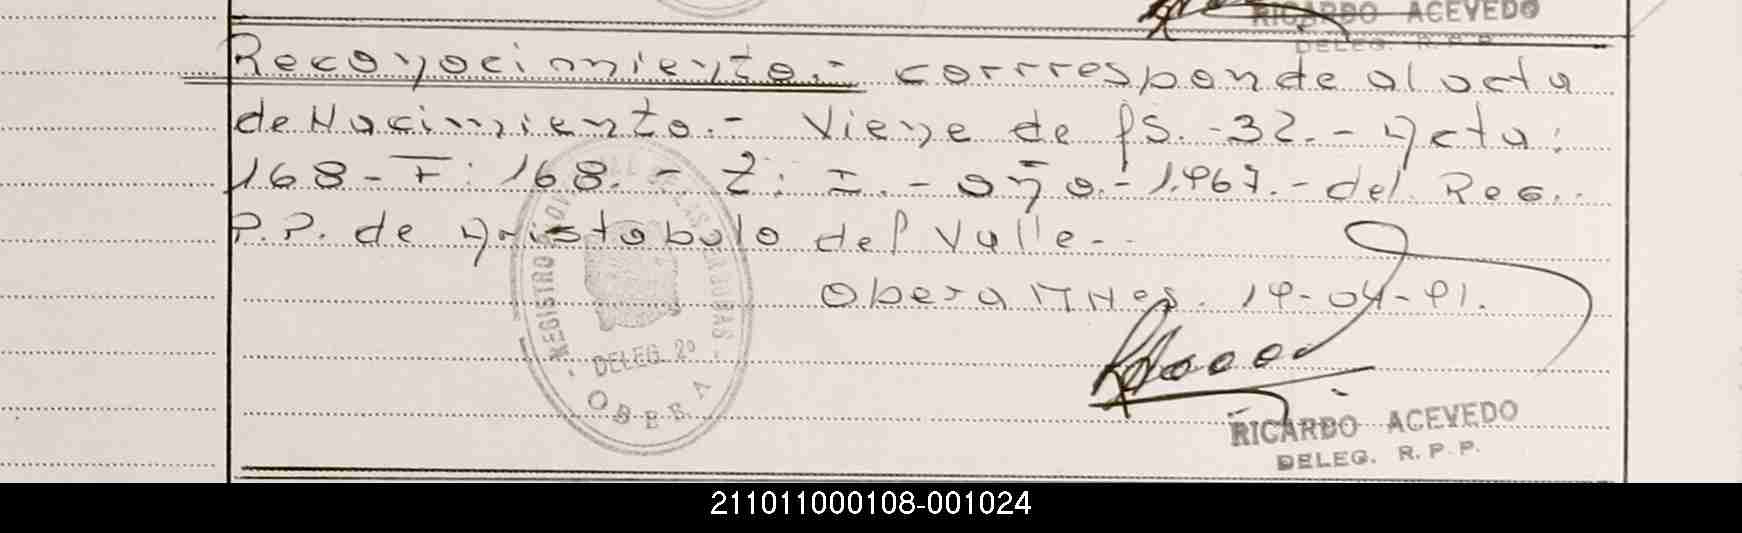 RICARDO ACEVEDO
DELEG. R.P.P.
Reconocimiento.- Corrresponde al acta
de Nacimiento.- Viene de fs.-32.- Acta:
168-F: 168.- T: I.- año.- 1.967.- del Reg..
P.P. de Aristobulo del Valle.-
Obera Mnes. 19-04-91.
REGISTRO
DELEG. 2º
OBERA
RICARDO ACEVEDO
DELEG. R.P.P.
211011000108-001024